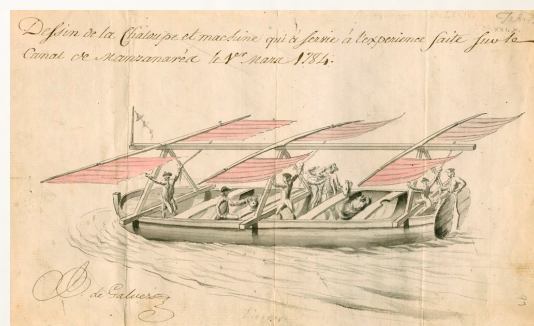 Dessin de la Chaloupe et machine qui a servie à l'experience faite sur le
Canal de Manzanaréd le 1er Mars 1784.
de Galvez